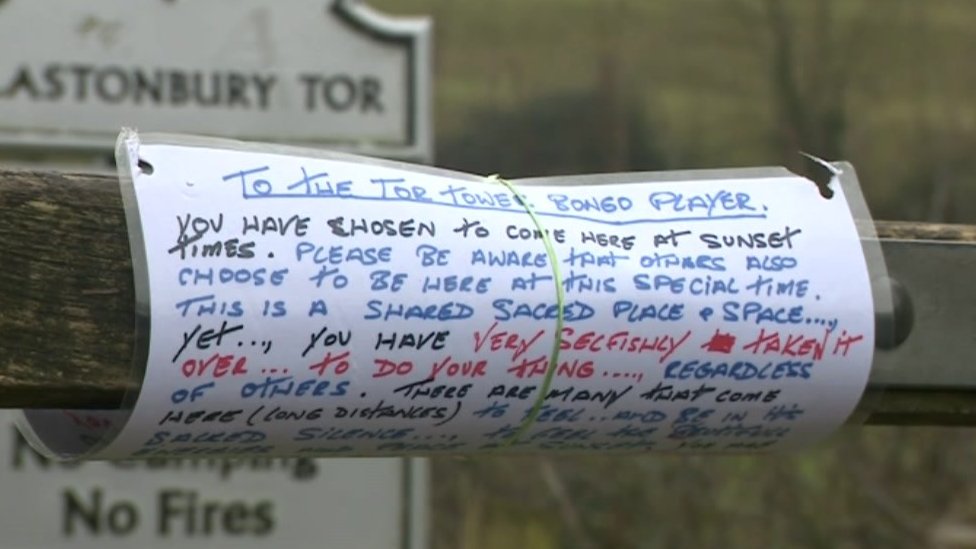 LASTONBURY TOR
TO THE TOR TOWER BONGO PLAYER.
YOU HAVE CHOSEN TO COME HERE AT SUNSET
TIMES. PLEASE BE AWARE THAT OTHERS ALSO
CHOOSE TO BE HERE AT THIS SPECIAL TIME.
THIS IS A SHARED SACRED PLACE & SPACE....,
YET..., YOU HAVE VERY SELFISHLY TAKEN IT
OVER... TO DO YOUR THING...., REGARDLESS
OF OTHERS. THERE ARE MANY THAT COME
HERE (LONG DISTANCES) TO FEEL.. AND BE IN ITS
SACRED SILENCE...., TO FEEL THE BEAUTIFUL
No Camping
No Fires